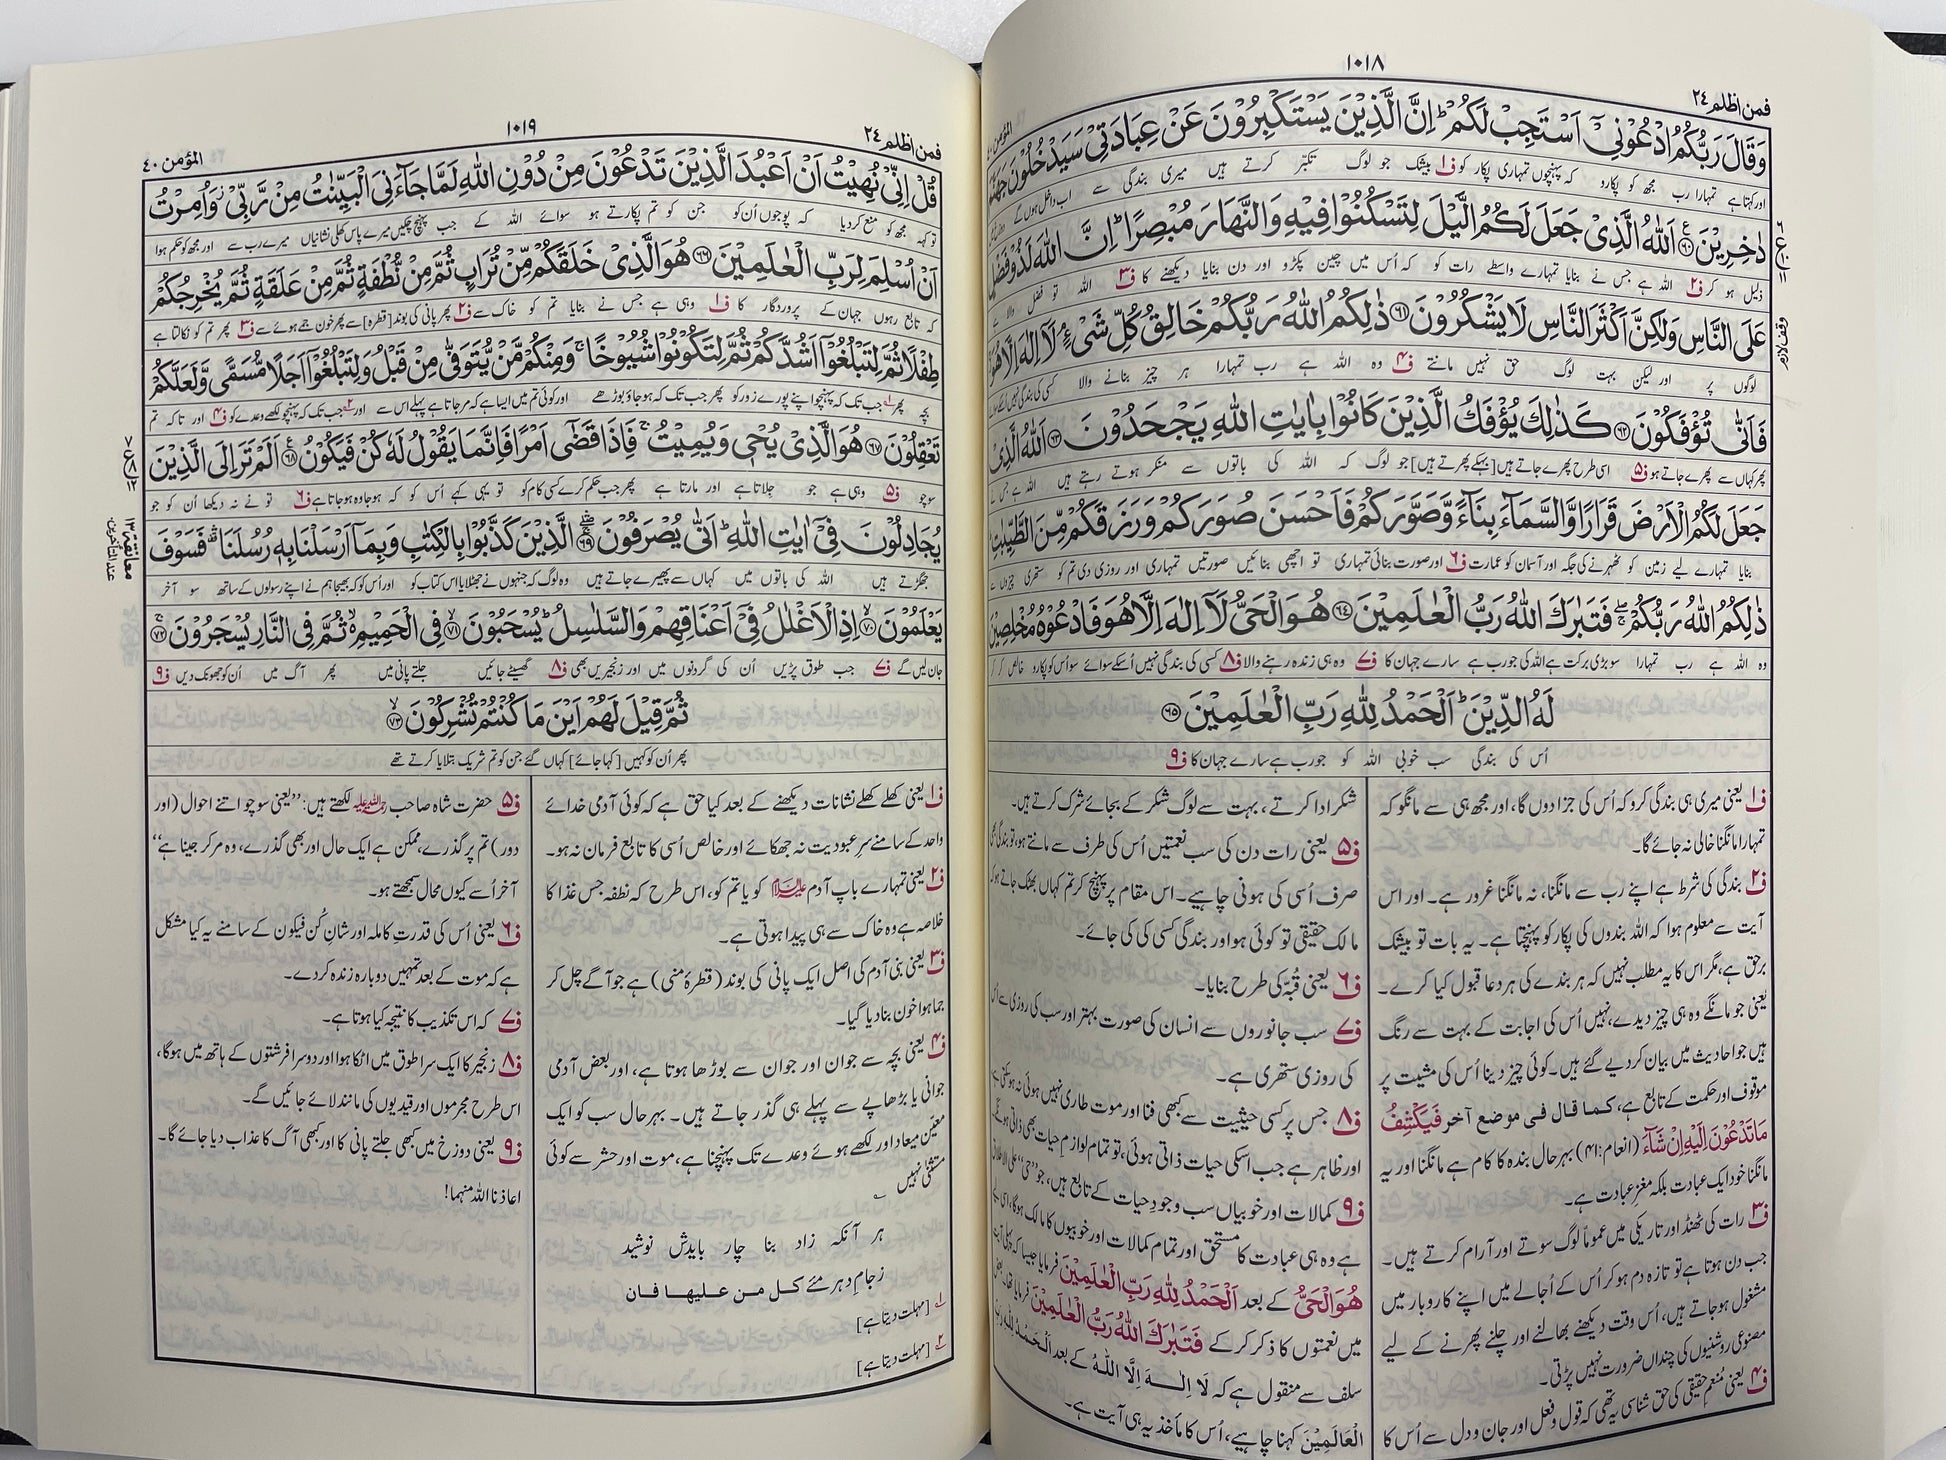 ١٠١٨
فمن اظلم ٢٤
المؤمن ٤٠
وَقَالَ رَبُّكُمُ ادْعُوْنِيْۤ اَسْتَجِبْ لَكُمْ ؕ اِنَّ الَّذِيْنَ يَسْتَكْبِرُوْنَ عَنْ عِبَادَتِيْ سَيَدْخُلُوْنَ جَهَنَّمَ
اور کہتا ہے تمہارا رب مجھ کو پکارو کہ پہنچوں تمہاری پکار کو ف۱ بیشک جو لوگ تکبّر کرتے ہیں میری بندگی سے اب داخل ہوں گے
دٰخِرِيْنَ ﴿٦٠﴾ اَللّٰهُ الَّذِيْ جَعَلَ لَكُمُ الَّيْلَ لِتَسْكُنُوْا فِيْهِ وَالنَّهَارَ مُبْصِرًا ؕ اِنَّ اللّٰهَ لَذُوْ فَضْلٍ
ذلیل ہو کر ف۲ اللہ ہے جس نے بنایا تمہارے واسطے رات کو کہ اُس میں چین پکڑو اور دن بنایا دیکھنے کا ف۳ اللہ تو فضل والا ہے
عَلَى النَّاسِ وَلٰكِنَّ اَكْثَرَ النَّاسِ لَا يَشْكُرُوْنَ ﴿٦١﴾ ذٰلِكُمُ اللّٰهُ رَبُّكُمْ خَالِقُ كُلِّ شَيْءٍ ۘ لَاۤ اِلٰهَ اِلَّا هُوَ
لوگوں پر اور لیکن بہت لوگ حق نہیں مانتے ف۴ وہ اللہ ہے رب تمہارا ہر چیز بنانے والا کسی کی بندگی نہیں
فَاَنّٰى تُؤْفَكُوْنَ ﴿٦٢﴾ كَذٰلِكَ يُؤْفَكُ الَّذِيْنَ كَانُوْا بِاٰيٰتِ اللّٰهِ يَجْحَدُوْنَ ﴿٦٣﴾ اَللّٰهُ الَّذِيْ
پھر کہاں سے پھرے جاتے ہو ف۵ اسی طرح پھرے جاتے ہیں [بہکے پھرتے ہیں] جو لوگ کہ اللہ کی باتوں سے منکر ہوتے رہتے ہیں اللہ ہے جس نے
جَعَلَ لَكُمُ الْاَرْضَ قَرَارًا وَّالسَّمَآءَ بِنَآءً وَّصَوَّرَكُمْ فَاَحْسَنَ صُوَرَكُمْ وَرَزَقَكُمْ مِّنَ الطَّيِّبٰتِ
بنایا تمہارے لیے زمین کو ٹھہرنے کی جگہ اور آسمان کو عمارت ف۶ اور صورت بنائی تمہاری تو اچھی بنائیں صورتیں تمہاری اور روزی دی تم کو ستھری چیزوں سے
ذٰلِكُمُ اللّٰهُ رَبُّكُمْ ۖ فَتَبٰرَكَ اللّٰهُ رَبُّ الْعٰلَمِيْنَ ﴿٦٤﴾ هُوَ الْحَيُّ لَاۤ اِلٰهَ اِلَّا هُوَ فَادْعُوْهُ مُخْلِصِيْنَ
وہ اللہ ہے رب تمہارا سو بڑی برکت ہے اللہ کی جو رب ہے سارے جہان کا ف۷ وہ ہی زندہ رہنے والا ف۸ کسی کی بندگی نہیں اُسکے سوائے سو اُس کو پکارو خالص کر کر
لَهُ الدِّيْنَ ؕ اَلْحَمْدُ لِلّٰهِ رَبِّ الْعٰلَمِيْنَ ﴿٦٥﴾
اُس کی بندگی سب خوبی اللہ کو جو رب ہے سارے جہان کا ف۹
وقف لازم
ف۱ یعنی میری ہی بندگی کرو کہ اُس کی جزا دوں گا، اور مجھ ہی سے مانگو کہ
تمہارا مانگنا خالی نہ جائے گا۔
ف۲ بندگی کی شرط ہے اپنے رب سے مانگنا، نہ مانگنا غرور ہے۔ اور اس
آیت سے معلوم ہوا کہ اللہ بندوں کی پکار کو پہنچتا ہے۔ یہ بات تو بیشک
برحق ہے، مگر اس کا یہ مطلب نہیں کہ ہر بندے کی ہر دعا قبول کیا کرے۔
یعنی جو مانگے وہ ہی چیز دیدے، نہیں اُس کی اجابت کے بہت سے رنگ
ہیں جو احادیث میں بیان کر دیے گئے ہیں۔ کوئی چیز دینا اُس کی مشیت پر
موقوف اور حکمت کے تابع ہے، كما قال في موضع آخر فَيَكْشِفُ
مَا تَدْعُوْنَ اِلَيْهِ اِنْ شَآءَ (انعام:۴۱) بہر حال بندہ کا کام ہے مانگنا اور یہ
مانگنا خود ایک عبادت بلکہ مغز عبادت ہے۔
ف۳ رات کی ٹھنڈ اور تاریکی میں عموماً لوگ سوتے اور آرام کرتے ہیں۔
جب دن ہوتا ہے تو تازہ دم ہو کر اُس کے اُجالے میں اپنے کاروبار میں
مشغول ہو جاتے ہیں، اُس وقت دیکھنے بھالنے اور چلنے پھرنے کے لیے
مصنوعی روشنیوں کی چنداں ضرورت نہیں پڑتی۔
ف۴ یعنی مُنعم حقیقی کی حق شناسی یہ تھی کہ قول و فعل اور جان و دل سے اُس کا
شکر ادا کرتے، بہت سے لوگ شکر کے بجائے شرک کرتے ہیں۔
ف۵ یعنی رات دن کی سب نعمتیں اُس کی طرف سے مانتے ہو، تو بندگی بھی
صرف اُسی کی ہونی چاہیے۔ اس مقام پر پہنچ کر تم کہاں بھٹک جاتے ہو کہ
مالک حقیقی تو کوئی ہو اور بندگی کسی کی کی جائے۔
ف۶ یعنی قُبّہ کی طرح بنایا۔
ف۷ سب جانوروں سے انسان کی صورت بہتر اور سب کی روزی سے اُس
کی روزی ستھری ہے۔
ف۸ جس پر کسی حیثیت سے کبھی فنا اور موت طاری نہیں ہوئی نہ ہو سکتی ہے
اور ظاہر ہے جب اسکی حیات ذاتی ہوئی، تو تمام لوازم حیات بھی ذاتی ہوں گے
ف۹ کمالات اور خوبیاں سب وجودِ حیات کے تابع ہیں، جو ”حی“ علی الاطلاق
ہے وہ ہی عبادت کا مستحق اور تمام کمالات اور خوبیوں کا مالک ہوگا، اسی لیے
هُوَ الْحَيُّ کے بعد اَلْحَمْدُ لِلّٰهِ رَبِّ الْعٰلَمِيْنَ فرمایا جیسا کہ پہلی آیت
میں نعمتوں کا ذکر کر کے فَتَبٰرَكَ اللّٰهُ رَبُّ الْعٰلَمِيْنَ فرمایا تھا۔ بعض
سلف سے منقول ہے کہ لَا اِلٰهَ اِلَّا اللّٰهُ کے بعد اَلْحَمْدُ لِلّٰهِ رَبِّ
الْعَالَمِيْنَ کہنا چاہیے، اُس کا مأخذ یہ ہی آیت ہے۔
١٠١٩
فمن اظلم ٢٤
المؤمن ٤٠
قُلْ اِنِّيْ نُهِيْتُ اَنْ اَعْبُدَ الَّذِيْنَ تَدْعُوْنَ مِنْ دُوْنِ اللّٰهِ لَمَّا جَآءَنِيَ الْبَيِّنٰتُ مِنْ رَّبِّيْ ؗ وَاُمِرْتُ
تو کہہ مجھ کو منع کر دیا کہ پوجوں اُن کو جن کو تم پکارتے ہو سوائے اللہ کے جب پہنچ چکیں میرے پاس کھلی نشانیاں میرے رب سے اور مجھ کو حکم ہوا
اَنْ اُسْلِمَ لِرَبِّ الْعٰلَمِيْنَ ﴿٦٦﴾ هُوَ الَّذِيْ خَلَقَكُمْ مِّنْ تُرَابٍ ثُمَّ مِنْ نُّطْفَةٍ ثُمَّ مِنْ عَلَقَةٍ ثُمَّ يُخْرِجُكُمْ
کہ تابع رہوں جہان کے پروردگار کا ف۱ وہی ہے جس نے بنایا تم کو خاک سے ف۲ پھر پانی کی بوند [قطرہ] سے پھر خون جمے ہوئے سے ف۳ پھر تم کو نکالتا ہے
طِفْلًا ثُمَّ لِتَبْلُغُوْۤا اَشُدَّكُمْ ثُمَّ لِتَكُوْنُوْا شُيُوْخًا ۚ وَمِنْكُمْ مَّنْ يُّتَوَفّٰى مِنْ قَبْلُ وَلِتَبْلُغُوْۤا اَجَلًا مُّسَمًّى وَّلَعَلَّكُمْ
بچہ پھر ۱ جب تک کہ پہنچو اپنے پورے زور کو پھر جب تک کہ ہو جاؤ بوڑھے اور کوئی تم میں ایسا ہے کہ مر جاتا ہے پہلے اس سے اور ۲ جب تک کہ پہنچو لکھے وعدے کو ف۴ اور تاکہ تم
تَعْقِلُوْنَ ﴿٦٧﴾ هُوَ الَّذِيْ يُحْيٖ وَيُمِيْتُ ۚ فَاِذَا قَضٰۤى اَمْرًا فَاِنَّمَا يَقُوْلُ لَهٗ كُنْ فَيَكُوْنُ ﴿٦٨﴾ اَلَمْ تَرَ اِلَى الَّذِيْنَ
سوچو ف۵ وہی ہے جو جِلاتا ہے اور مارتا ہے پھر جب حکم کرے کسی کام کو تو یہی کہے اُس کو کہ ہو جا وہ ہو جاتا ہے ف۶ تو نے نہ دیکھا اُن کو جو
يُجَادِلُوْنَ فِيْۤ اٰيٰتِ اللّٰهِ ؕ اَنّٰى يُصْرَفُوْنَ ﴿٦٩﴾ الَّذِيْنَ كَذَّبُوْا بِالْكِتٰبِ وَبِمَاۤ اَرْسَلْنَا بِهٖ رُسُلَنَا ۛ فَسَوْفَ
جھگڑتے ہیں اللہ کی باتوں میں کہاں سے پھیرے جاتے ہیں وہ لوگ کہ جنہوں نے جھٹلایا اس کتاب کو اور اُس کو کہ بھیجا ہم نے اپنے رسولوں کے ساتھ سو آخر
يَعْلَمُوْنَ ﴿٧٠﴾ اِذِ الْاَغْلٰلُ فِيْۤ اَعْنَاقِهِمْ وَالسَّلٰسِلُ ؕ يُسْحَبُوْنَ ﴿٧١﴾ فِي الْحَمِيْمِ ۙ ثُمَّ فِي النَّارِ يُسْجَرُوْنَ ﴿٧٢﴾
جان لیں گے ف۷ جب طوق پڑیں اُن کی گردنوں میں اور زنجیریں بھی ف۸ گھسیٹے جائیں جلتے پانی میں پھر آگ میں اُن کو جھونک دیں ف۹
ثُمَّ قِيْلَ لَهُمْ اَيْنَ مَا كُنْتُمْ تُشْرِكُوْنَ ﴿٧٣﴾
پھر اُن کو کہیں [کہا جائے] کہاں گئے جن کو تم شریک بتلایا کرتے تھے
معانقة ١٣
ف۱ یعنی کھلے کھلے نشانات دیکھنے کے بعد کیا حق ہے کہ کوئی آدمی خدائے
واحد کے سامنے سرِ عبودیت نہ جھکائے اور خالص اُسی کا تابع فرمان نہ ہو۔
ف۲ یعنی تمہارے باپ آدم علیہ السلام کو یا تم کو، اس طرح کہ نطفہ جس غذا کا
خلاصہ ہے وہ خاک سے ہی پیدا ہوتی ہے۔
ف۳ یعنی بنی آدم کی اصل ایک پانی کی بوند (قطرۂ منی) ہے جو آگے چل کر
جما ہوا خون بنا دیا گیا۔
ف۴ یعنی بچہ سے جوان اور جوان سے بوڑھا ہوتا ہے، اور بعض آدمی
جوانی یا بڑھاپے سے پہلے ہی گذر جاتے ہیں۔ بہر حال سب کو ایک
معیّن میعاد اور لکھے ہوئے وعدے تک پہنچنا ہے، موت اور حشر سے کوئی
مستثنٰی نہیں
ہر آنکہ زاد بنا چار بایدش نوشید
زجامِ دہر مئے کل من علیہا فان
۱ [مہلت دیتا ہے]
۲ [مہلت دیتا ہے]
ف۵ حضرت شاہ صاحب رحمہ اللہ لکھتے ہیں: ”یعنی سوچو اتنے احوال (اور
دور) تم پر گذرے، ممکن ہے ایک حال اور بھی گذرے، وہ مر کر جینا ہے“
آخر اُسے کیوں محال سمجھتے ہو۔
ف۶ یعنی اُس کی قدرتِ کاملہ اور شانِ کُن فیکون کے سامنے یہ کیا مشکل
ہے کہ موت کے بعد تمہیں دوبارہ زندہ کر دے۔
ف۷ کہ اس تکذیب کا نتیجہ کیا ہوتا ہے۔
ف۸ زنجیر کا ایک سرا طوق میں اٹکا ہوا اور دوسرا فرشتوں کے ہاتھ میں ہوگا،
اس طرح مجرموں اور قیدیوں کی مانند لائے جائیں گے۔
ف۹ یعنی دوزخ میں کبھی جلتے پانی کا اور کبھی آگ کا عذاب دیا جائے گا۔
اعاذنا اللہ منہما!